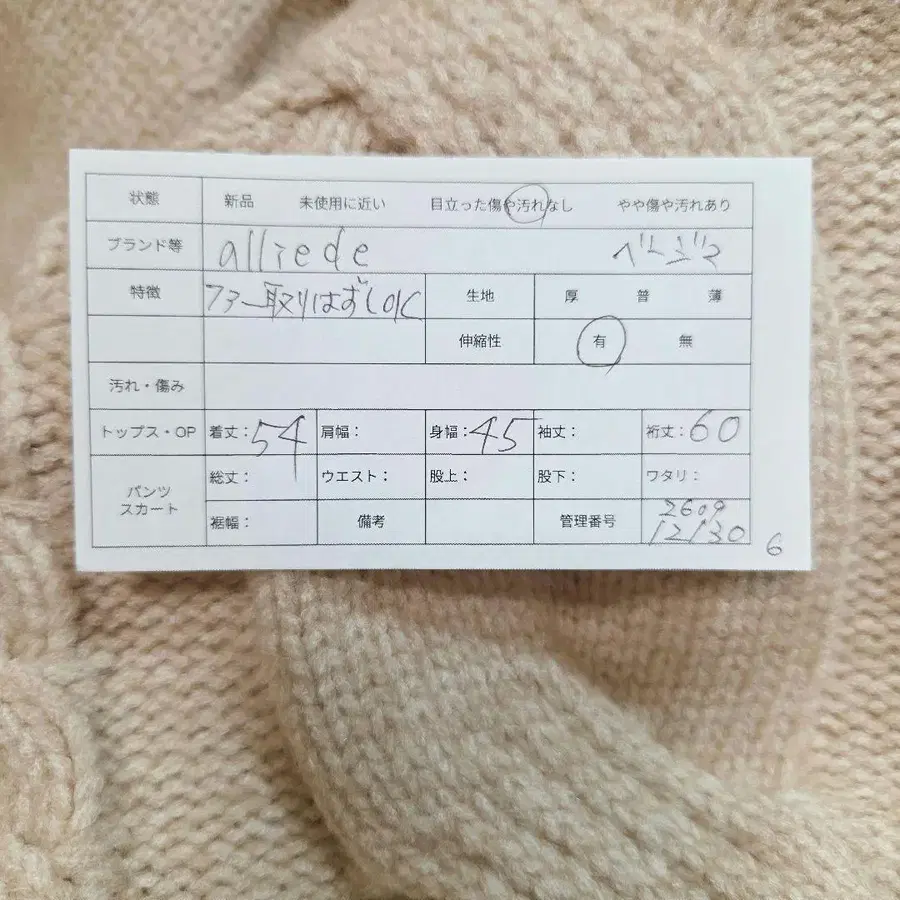 状態 新品 未使用に近い 目立った傷や汚れなし やや傷や汚れあり
ブランド等 alliede ベージュ
特徴 ファー取りはずしOK 生地 厚 普 薄
伸縮性 有 無
汚れ・傷み
トップス・OP 着丈：54 肩幅： 身幅：45 袖丈： 裄丈：60
パンツ スカート 総丈： ウエスト： 股上： 股下： ワタリ：
裾幅： 備考 管理番号 2609
12/30
6